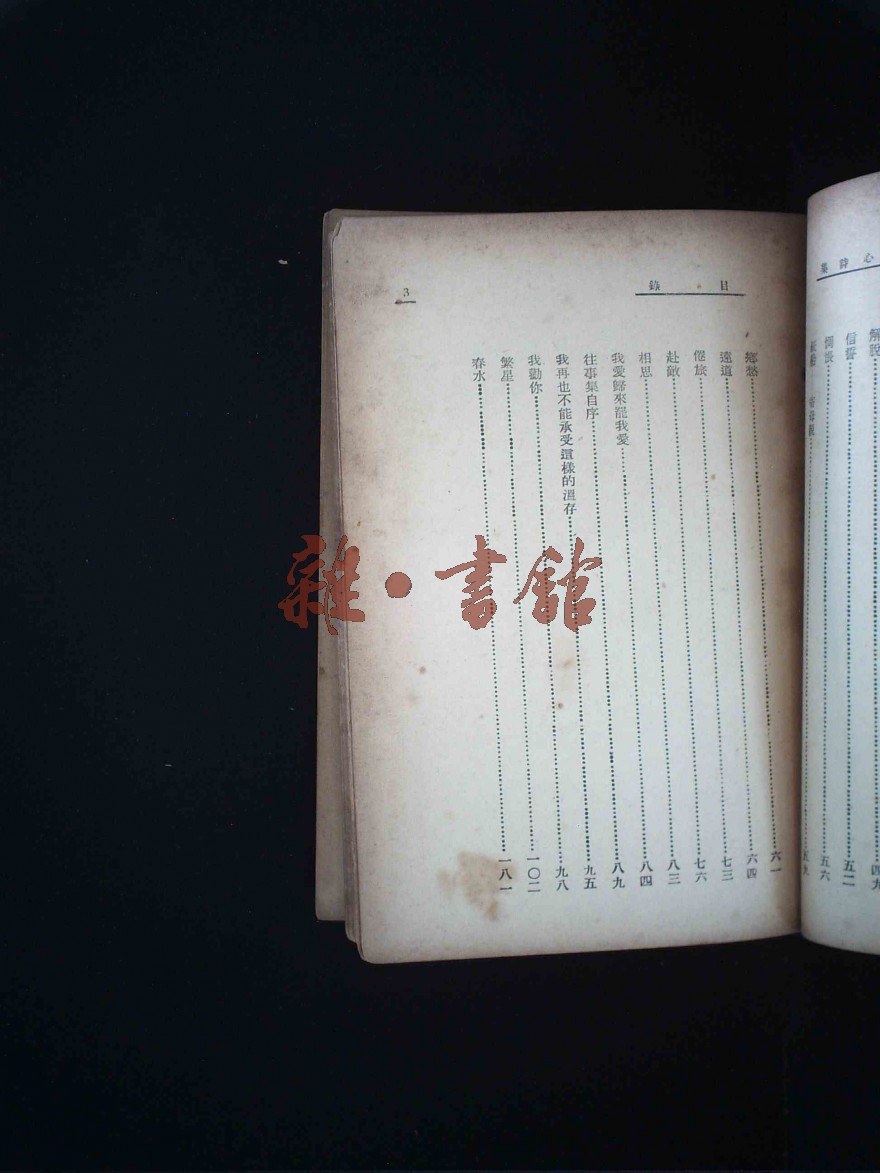 心詩集
解脫……四九
信誓……五二
五六
紙船 寄母親……五九
目錄
3
鄉愁……六一
遠道……六四
倦旅……七三
赴敵……七六
相思……八三
我愛歸來罷我愛……八四
往事集自序……八九
我再也不能承受這樣的溫存……九五
我勸你……九八
繁星……一〇二
春水……一八一
雜·書館